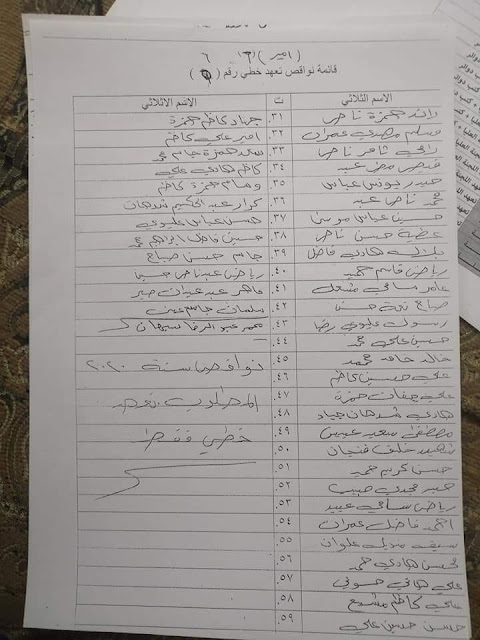 ( امير )
قائمة نواقص تعهد خطي رقم ( ) ٦
الاسم الثلاثي ت الاسم الاثلاثي
رائد حمزة ناصر ٣١. جهاد كاظم حمزة
مسلم مهدي عمران ٣٢. امير علي كاظم
راجي ثامر ناصر ٣٣. سعد حمزة جاسم محمد
قيصر معن عبد ٣٤. كاظم هادي علي
حيدر يونس عباس ٣٥. وسام حمزة كاظم
محمد ناصر عبد ٣٦. كرار عبد الحكيم شدهان
حسين عباس موسى ٣٧. حسن عباس عليوي
عطية حسن ناصر ٣٨. حسين فاضل ابراهيم محمد
هادي فاضل ٣٩. جاسم حسن صباح
رياض قاسم حميد ٤٠. رياض عبد ناصر
عامر سامي مشعل ٤١. ماهر عبد
صباح نعمة حسن ٤٢. سلمان جاسم
رسول عليوي رضا ٤٣. محمد عبد الرضا سبهان
حسن علي محمد ٤٤.
خالد حامد محمد ٤٥. نواقص سنة ٢٠٢٠
علي حسين كاظم ٤٦.
علي حمزة ٤٧. المطلوب تعهد
هادي شدهان جياد ٤٨.
مصطفى سعيد عيسى ٤٩. خطي فقط
شهيد خلف فنجان ٥٠.
حسن كريم حميد ٥١.
حبيب ٥٢.
رياض سامي عبيد ٥٣.
احمد فاضل عمران ٥٤.
سيف علوان ٥٥.
محسن هادي حمد ٥٦.
علي هاني حسوني ٥٧.
علي كاظم ٥٨.
حسن حسن علي ٥٩.